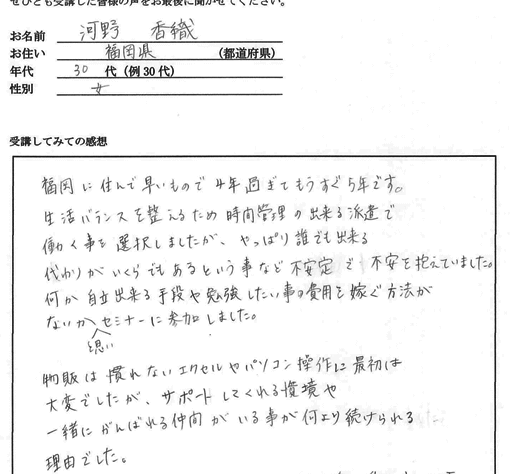 ぜひとも受講した皆様の声をお最後に聞かせてください。
お名前 河野 香織
お住い 福岡県 (都道府県)
年代 30 代(例30代)
性別 女
受講してみての感想
福岡に住んで早いもので4年過ぎてもうすぐ5年です。
生活バランスを整えるため時間管理の出来る派遣で
働く事を選択しましたが、やっぱり誰でも出来る
代わりがいくらでもあるという事など不安定で不安を抱えていました。
何か自立出来る手段や勉強したい事の費用を嫁ぐ方法が
ないか思いセミナーに参加しました。
物販は慣れないエクセルやパソコン操作に最初は
大変でしたが、サポートしてくれる環境や
一緒にがんばれる仲間がいる事が何より続けられる
理由でした。